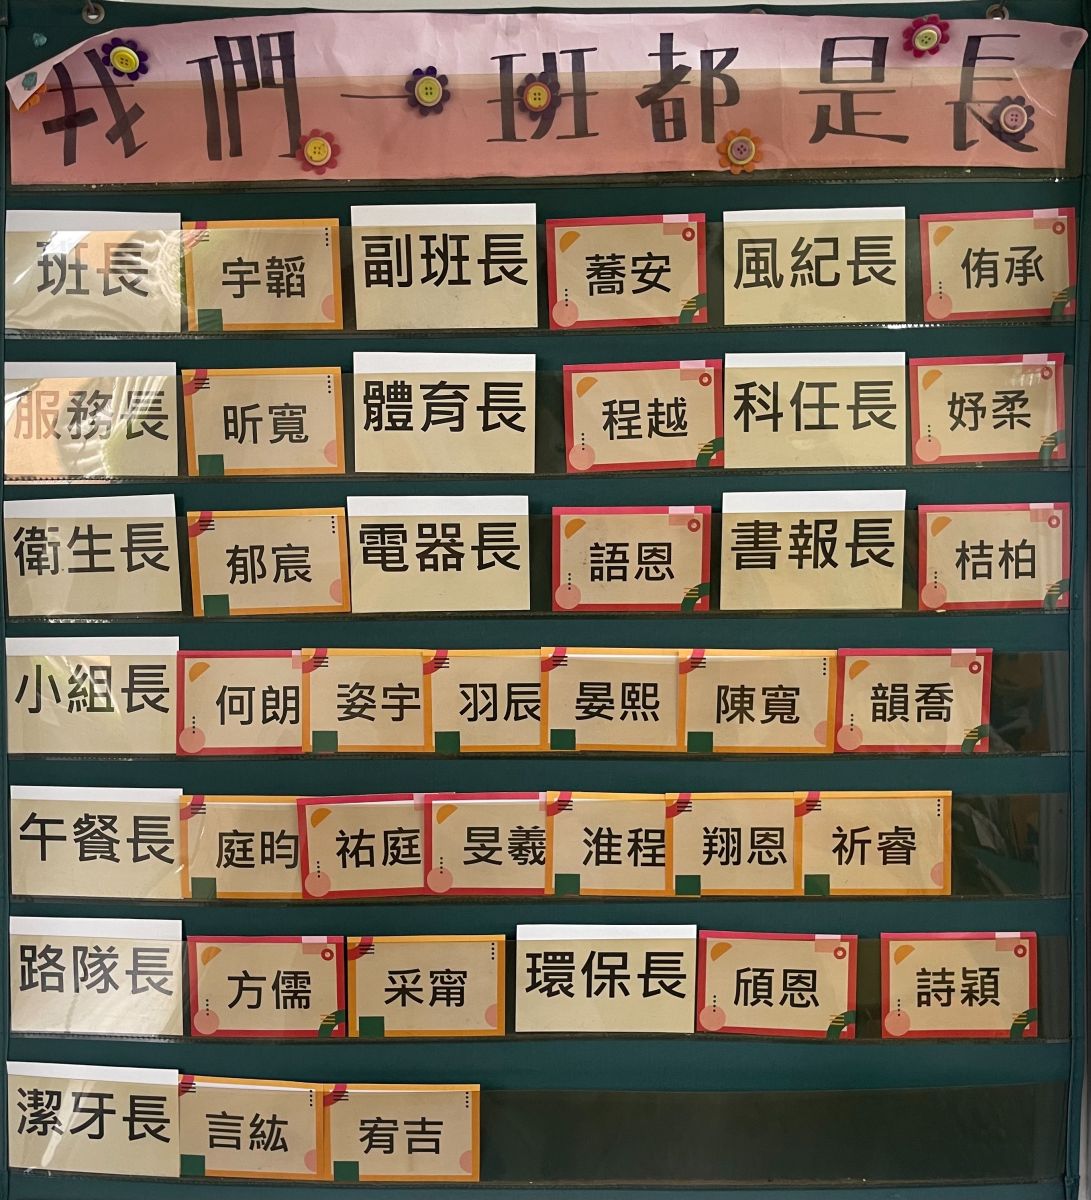 我們一班都是長
班長 宇韜 副班長 蕎安 風紀長 侑承
服務長 昕寬 體育長 程越 科任長 妤柔
衛生長 郁宸 電器長 語恩 書報長 桔柏
小組長 何朗 姿宇 羽辰 晏熙 陳寬 韻喬
午餐長 庭昀 祐庭 旻羲 淮程 翔恩 祈睿
路隊長 方儒 采甯 環保長 頎恩 詩穎
潔牙長 言紘 宥吉